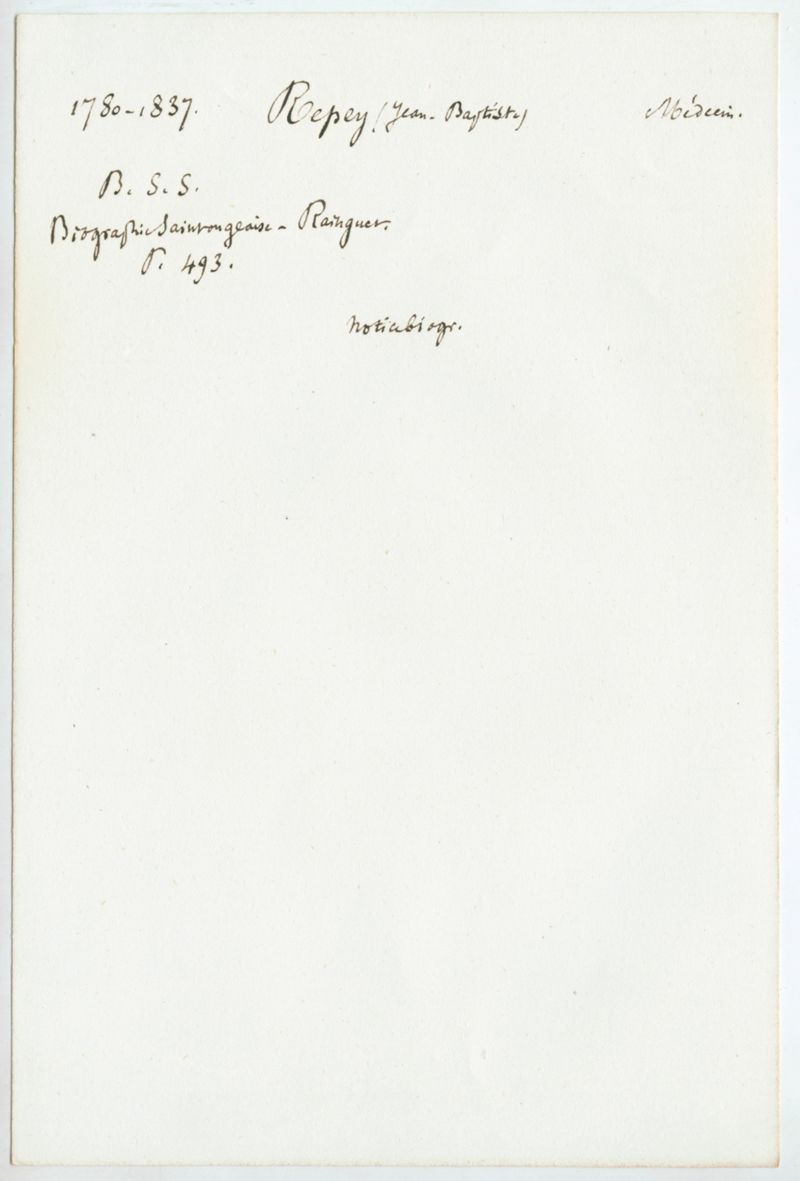 1780-1837. Repey (Jean-Baptiste) Médecin.
B. S. S.
Biographie Saintongeaise - Rainguet.
P. 493.
notice biogr.